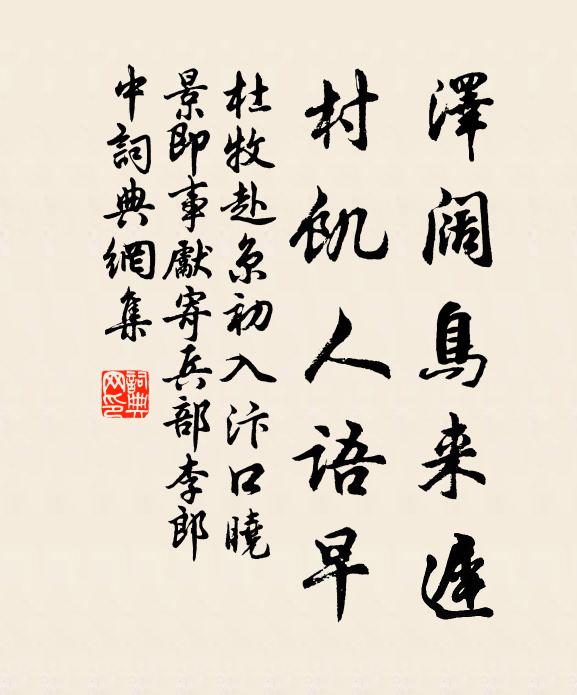 澤闊鳥来遲
村飢人語早
杜牧赴京初入汴口曉
景即事獻寄兵部李郎
中詞典網集
詞典网印